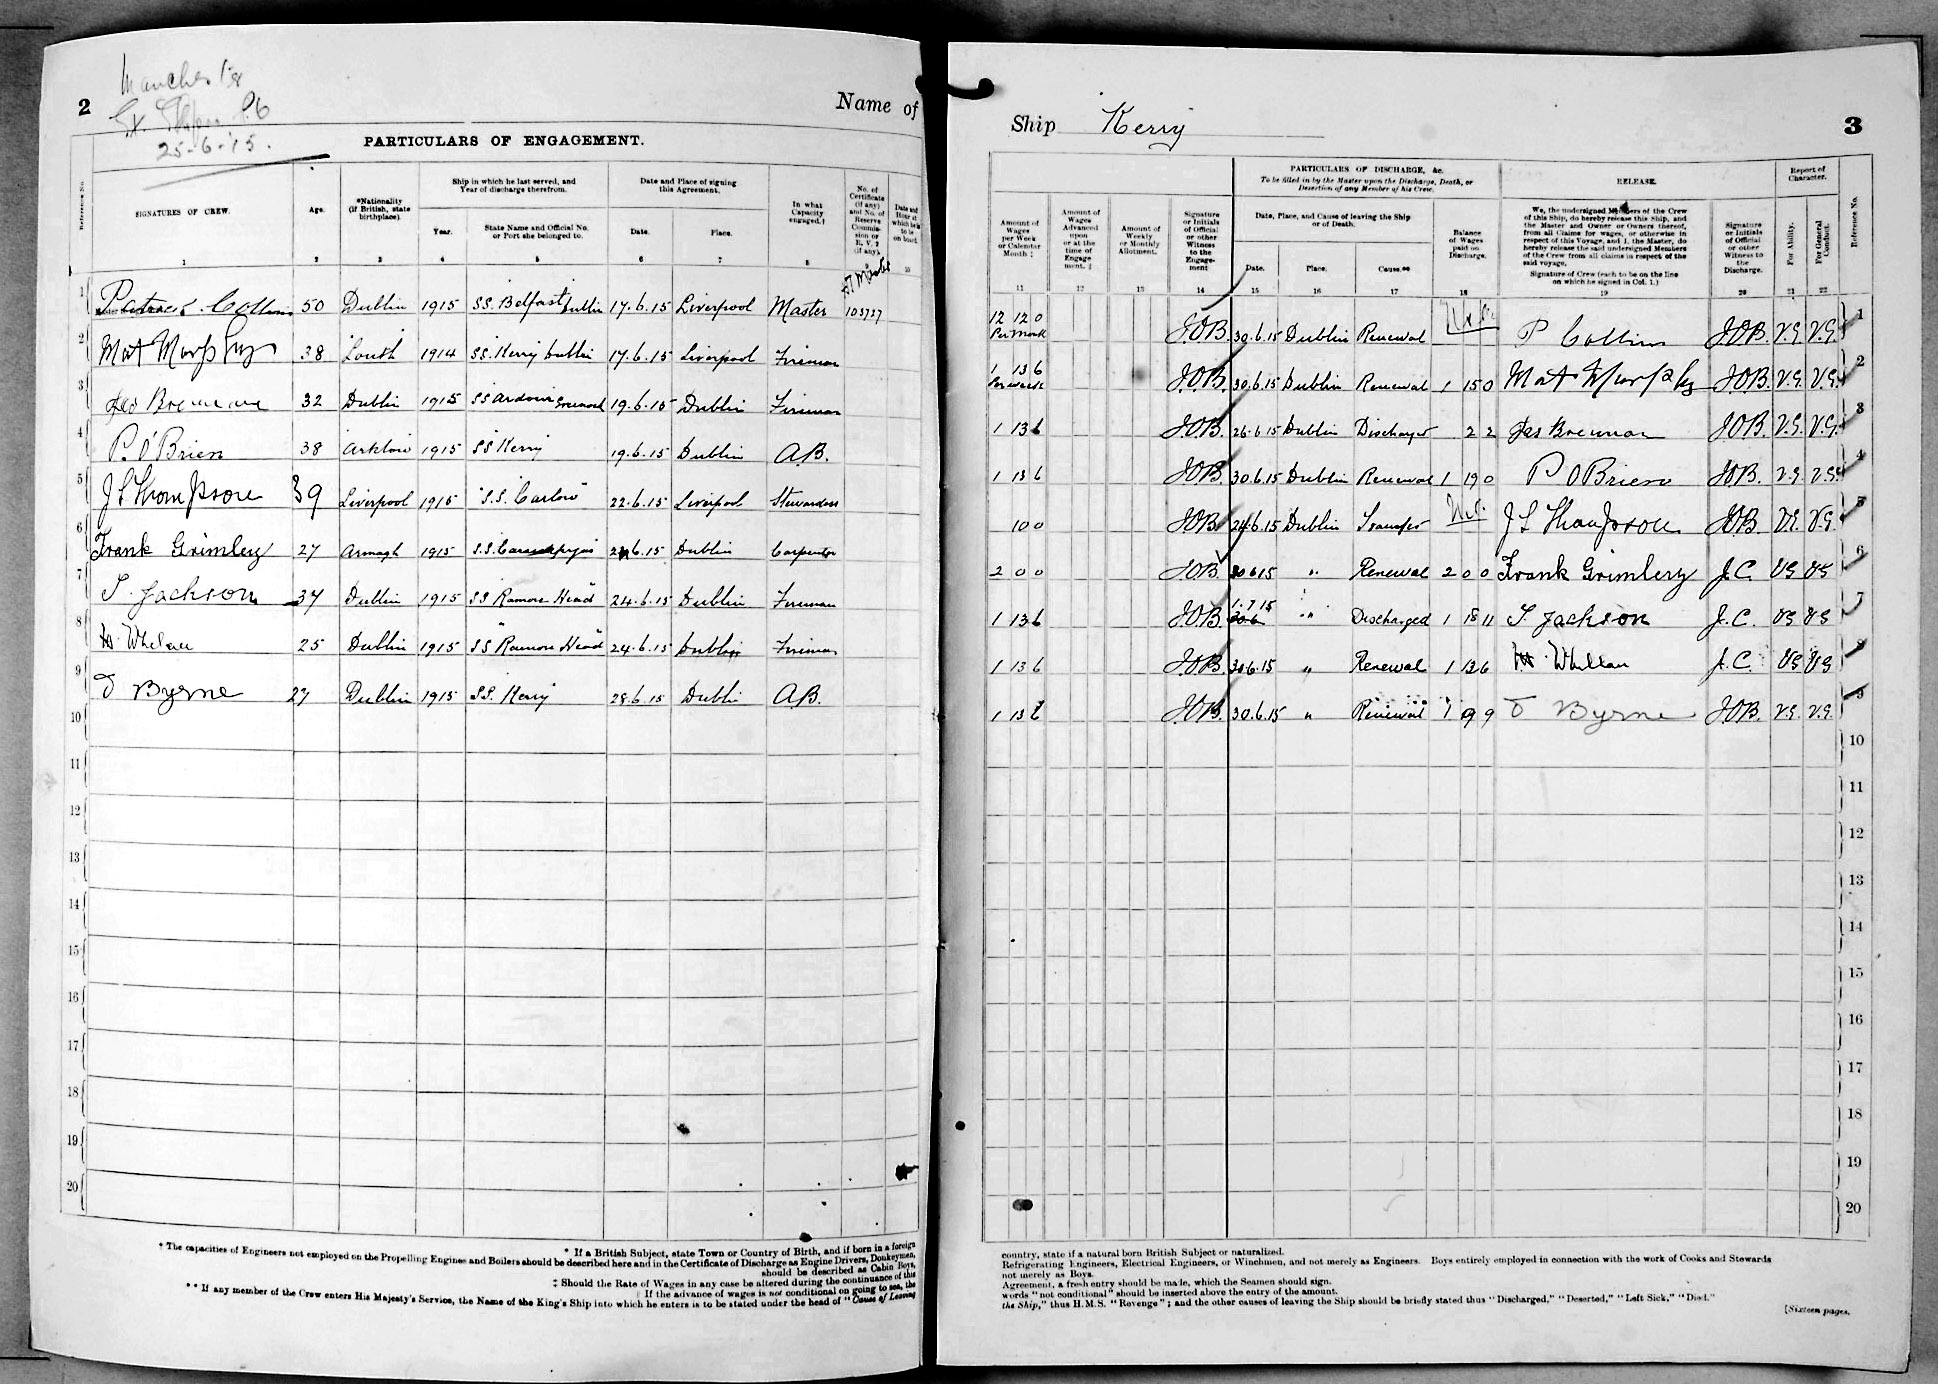 Manchester
2
25-6-15.
Name of
PARTICULARS OF ENGAGEMENT.
Reference No.
SIGNATURES OF CREW.
Age.
*Nationality (if British, state birthplace).
Ship in which he last served, and Year of discharge therefrom.
Year.
State Name and Official No. or Port she belonged to.
Date and Place of signing this Agreement.
Date.
Place.
In what Capacity engaged.†
No. of Certificate (if any) and No. of Reserve Commission or R.V. 2 (if any).
Date and Hour at which he is to be on board.
1 2 3 4 5 6 7 8 10
1 Collins 50 Dublin 1915 S.S. Belfast Dublin 17.6.15 Liverpool Master 103727
2 Mat Murphy 38 Louth 1914 S.S. Kerry Dublin 17.6.15 Liverpool Fireman
3 Brennan 32 Dublin 1915 SS Ardmore Greenock 19.6.15 Dublin Fireman
4 P. O'Brien 38 Arklow 1915 SS Kerry 19.6.15 Dublin A.B.
5 J L Thompson 39 Liverpool 1915 "S.S. Carlow" 22.6.15 Liverpool Stewardess
6 Frank Grimley 27 Armagh 1915 S.S. 6.15 Dublin Carpenter
7 T. Jackson 37 Dublin 1915 SS Ramore Head 24.6.15 Dublin Fireman
8 Whelan 25 Dublin 1915 SS Ramore Head 24.6.15 Dublin Fireman
9 Byrne 27 Dublin 1915 S.S. Kerry 28.6.15 Dublin A.B.
10
11
12
13
14
15
16
17
18
19
20
* If a British Subject, state Town or Country of Birth, and if born in a foreign
† The capacities of Engineers not employed on the Propelling Engines and Boilers should be described here and in the Certificate of Discharge as Engine Drivers, Donkeymen,
should be described as Cabin Boys,
‡ Should the Rate of Wages in any case be altered during the continuance of this
‖ If the advance of wages is not conditional on going to sea, the
** If any member of the Crew enters His Majesty's Service, the Name of the King's Ship into which he enters is to be stated under the head of "Cause of Leaving
Ship Kerry
3
Amount of Wages per Week or Calendar Month ‡
Amount of Wages Advanced upon or at the time of Engagement. ‖
Amount of Weekly or Monthly Allotment.
Signature or Initials of Official or other Witness to the Engagement
PARTICULARS OF DISCHARGE, &c.
To be filled in by the Master upon the Discharge, Death, or Desertion of any Member of his Crew.
Date, Place, and Cause of leaving the Ship or of Death.
Date.
Place.
Cause.**
Balance of Wages paid on Discharge.
RELEASE.
We, the undersigned Members of the Crew
of this Ship, do hereby release this Ship, and
the Master and Owner or Owners thereof,
from all Claims for wages, or otherwise in
respect of this Voyage, and I, the Master, do
hereby release the said undersigned Members
of the Crew from all claims in respect of the
said voyage.
Signature of Crew (each to be on the line on which he signed in Col. 1.)
Signature or Initials of Official or other Witness to the Discharge.
Report of Character.
For Ability.
For General Conduct.
Reference No.
11 12 13 14 15 16 17 18 19 20 21 22
12 12 0 Per Month J.O.B. 30.6.15 Dublin Renewal P Collins J.O.B. V.G. V.G. 1
1 13 6 Per week J.O.B. 30.6.15 Dublin Renewal 1 15 0 Mat Murphy J.O.B. V.G. V.G. 2
1 13 6 J.O.B. 26.6.15 Dublin Discharged 2 2 Jas Brennan J.O.B. V.G. V.G. 3
1 13 6 J.O.B. 30.6.15 Dublin Renewal 1 19 0 P O Brien J.O.B. V.G. V.G. 4
10 0 J.O.B. 24.6.15 Dublin Transfer Nil. J L Thompson J.O.B. V.G. V.G. 5
2 0 0 J.O.B. 30 6 15 " Renewal 2 0 0 Frank Grimley J.C. VG VG 6
1 13 6 J.O.B. 1.7.15 " Discharged 1 18 11 T. Jackson J.C. VG VG 7
1 13 6 J.O.B. 30.6.15 " Renewal 1 13 6 Whelan J.C. VG VG 8
1 13 6 J.O.B. 30.6.15 " Renewal 1 9 9 Byrne J.O.B. V.G. V.G. 9
10
11
12
13
14
15
16
17
18
19
20
country, state if a natural born British Subject or naturalized.
Refrigerating Engineers, Electrical Engineers, or Winchmen, and not merely as Engineers. Boys entirely employed in connection with the work of Cooks and Stewards
not merely as Boys.
Agreement, a fresh entry should be made, which the Seamen should sign.
words "not conditional" should be inserted above the entry of the amount.
the Ship," thus H.M.S. "Revenge"; and the other causes of leaving the Ship should be briefly stated thus "Discharged," "Deserted," "Left Sick," "Died."
[Sixteen pages.